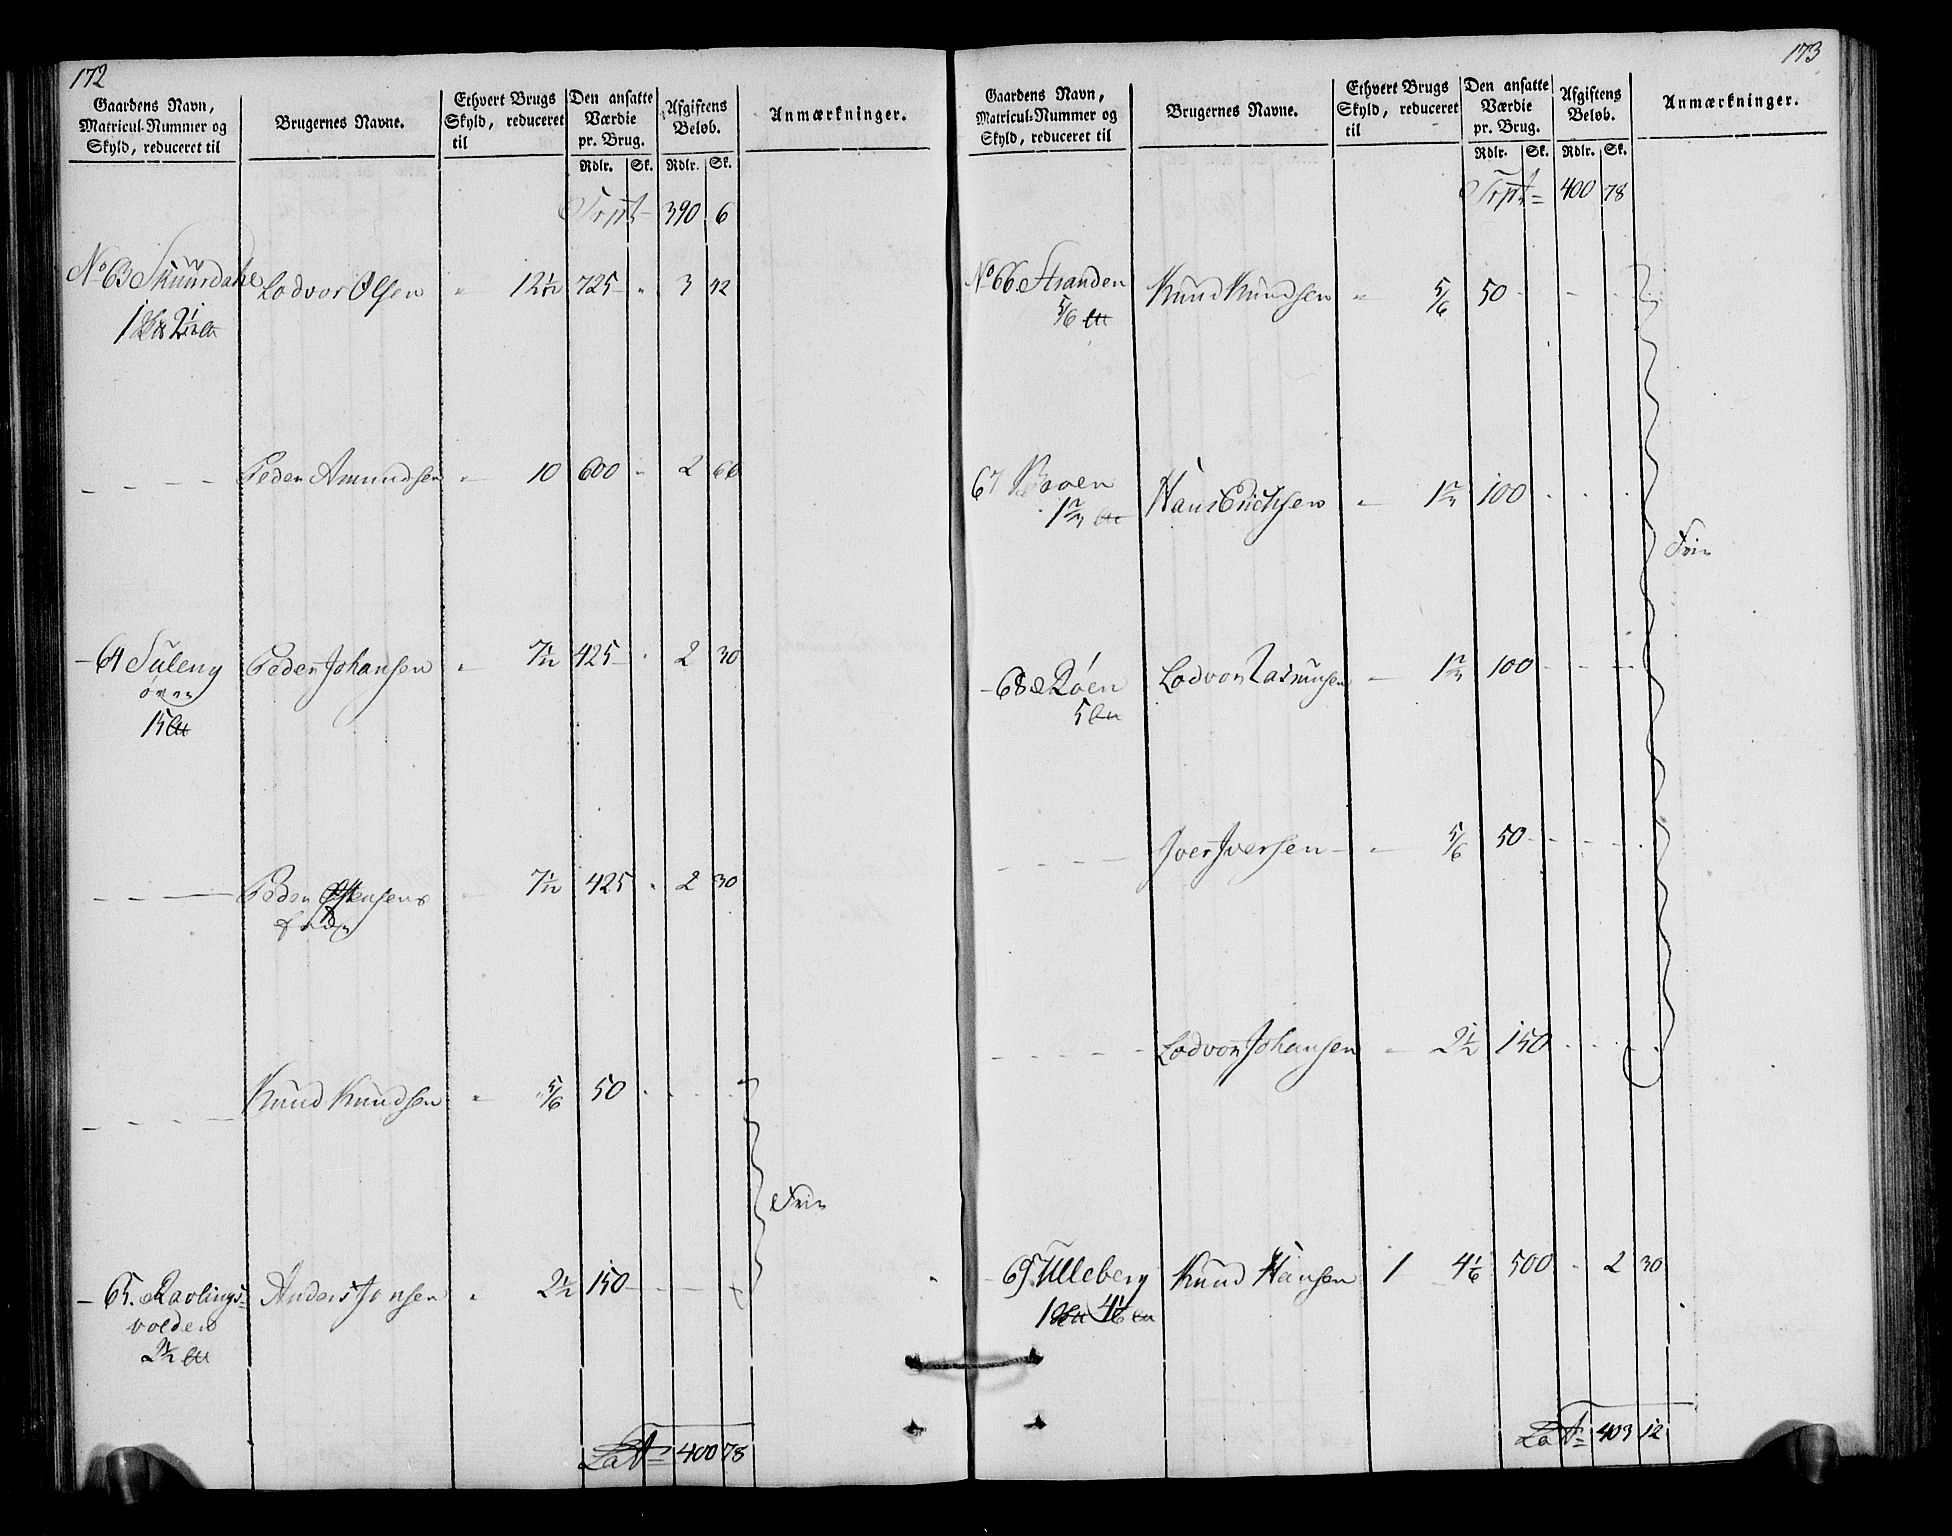 172
Gaardens Navn, Matricul-Nummer og Skyld, reduceret til
Brugernes Navne.
Ethvert Brugs Skyld, reduceret til
Den ansatte Værdie pr. Brug.
Afgiftens Beløb.
Anmærkninger.
Rdlr. Sk. Rdlr. Sk.
Trpt 390 6
No 63 Skuurdahl Lodvor Olsen " 12 1/12 725 " 3 42
1 2 1/12
Peder Amundsen " 10 600 " 2 66
- 64 Suleng Peder Johansen " 7 1/12 425 " 2 30
øvre
15
Peder " 7 1/12 425 " 2 30
Knud Knudsen " 5/6 50
Frie
- 65. Ravlings= Anders Jonsen " 2 1/2 150
volden
2 1/2
Lat= 400 78
173
Gaardens Navn, Matricul-Nummer og Skyld, reduceret til
Brugernes Navne.
Ethvert Brugs Skyld, reduceret til
Den ansatte Værdie pr. Brug.
Afgiftens Beløb.
Anmærkninger.
Rdlr. Sk. Rdlr. Sk.
Trpt= 400 78
No 66. Stranden Knud Knudsen " 5/6 50
5/6
67 Hans Erichsen " 1 2/3 100
1 2/3
Frie
- 68. Røen Lodvor Rasmusen 1 2/3 100
5
Iver Iversen " 5/6 50
Lodvor Johansen " 2 1/2 150
- 69. Ulleberg Knud Hansen 1 4 1/6 500 " 2 30
1 4 1/6
Lat= 403 12